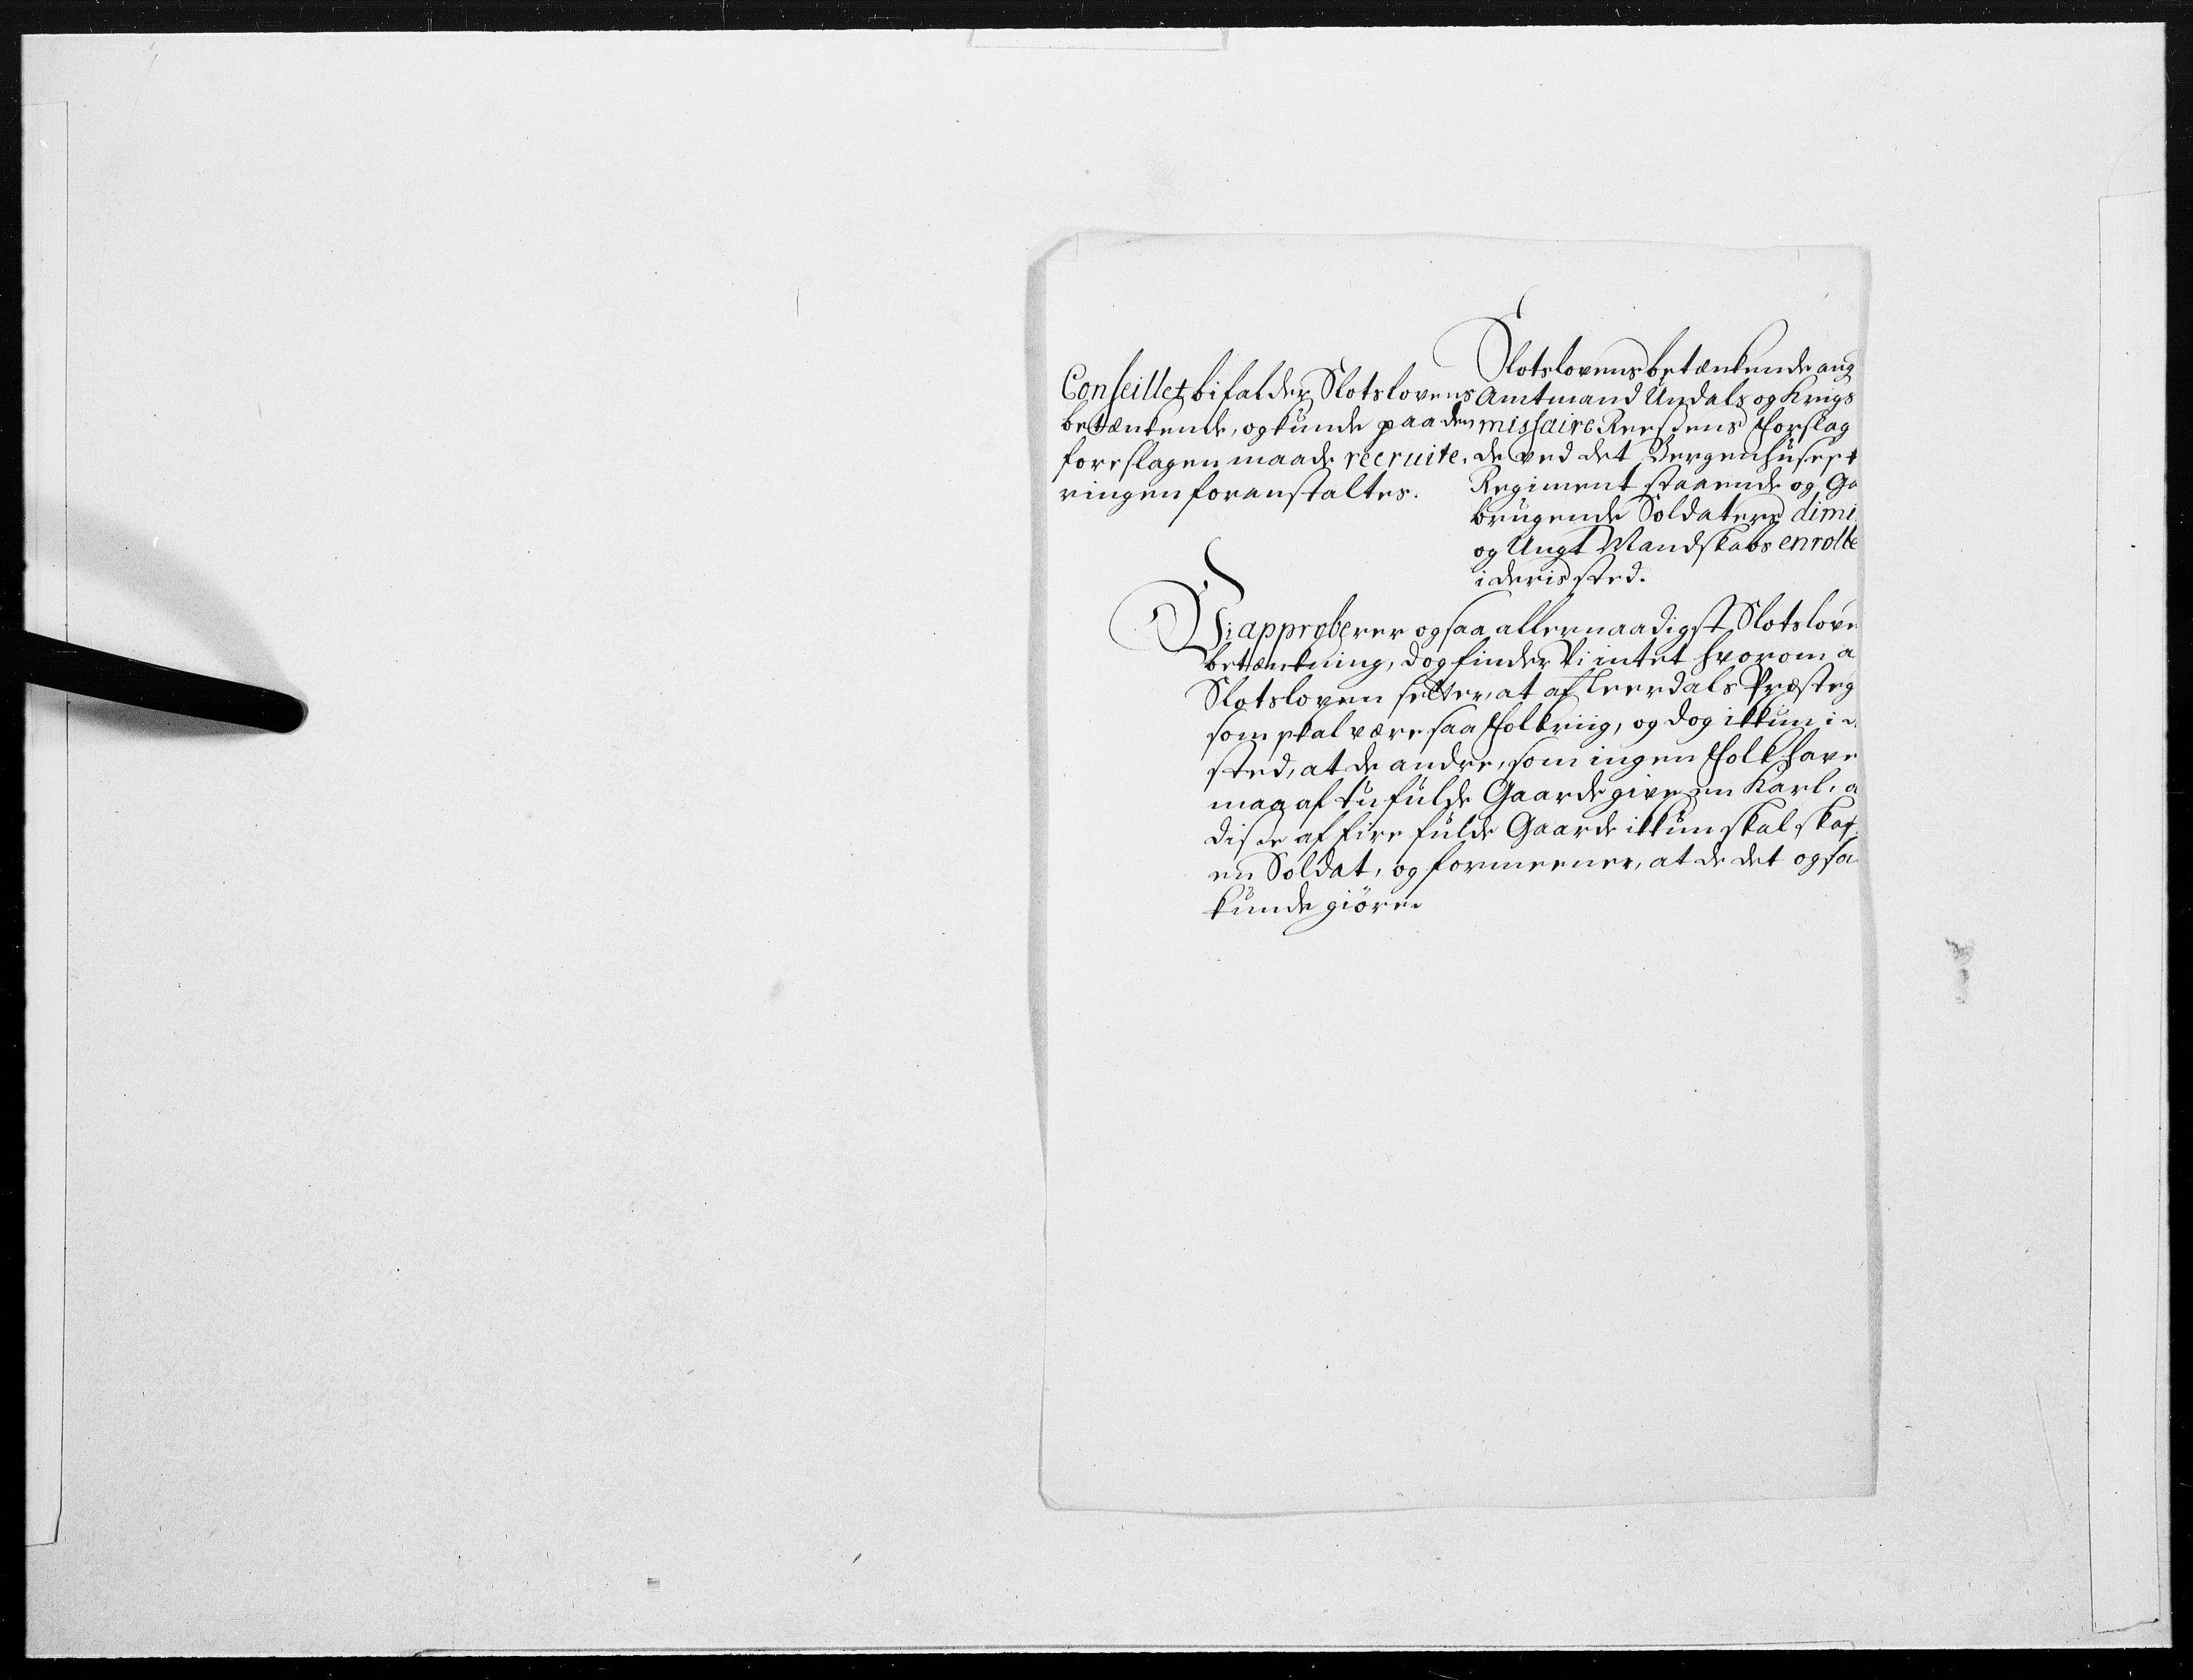 Conseillet bifalder Slotslovens
betænkende, og kunde paa den
foreslagen maade recruite-
ringen foranstaltes.
Slotslovens betænkende ang
Amtmand Undals og Krigs
missaire Reersens Forslag
de ved det Bergenhusest
Regiment staaende og Ga
brugende Soldaters dimi
og Ungt Mandskabs enrolle
i deris sted.
Vi approberer ogsaa allernaadigst Slotslove
betænkning, dog finder Vi intet hvorom a
Slotsloven selter, at af Leerdals Præsteg
som skal være saa Folkriig, og dog ikkun i
sted, at de andre, som ingen Folk have
maa af tu fulde Gaarde give en Karl, a
disse af fire fulde Gaarde ikkun skal skaf
en Soldat, og formeener, at de det ogsa
kunde giøre.